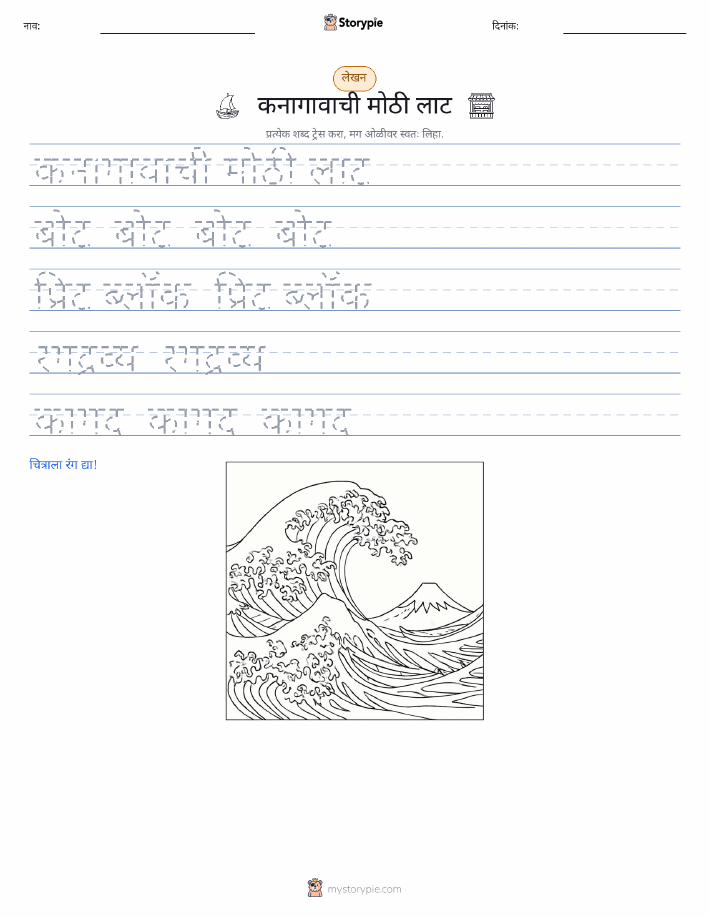 नाव:
Storypie
दिनांक:
लेखन
कनागावाची मोठी लाट
प्रत्येक शब्द ट्रेस करा, मग ओळीवर स्वतः लिहा.
कनागावाची मोठी लाट
बोट बोट बोट बोट
प्रिंट ब्लॉक प्रिंट ब्लॉक
रंगद्रव्य रंगद्रव्य
कागद कागद कागद
चित्राला रंग द्या!
mystorypie.com